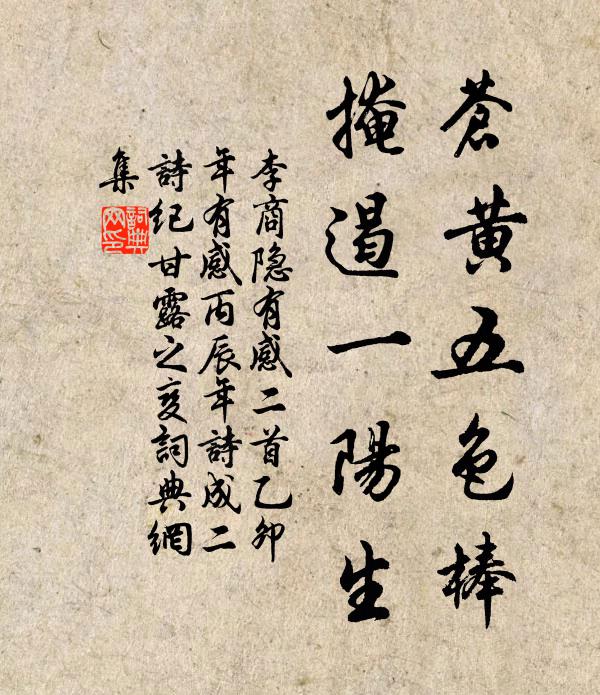 蒼黃五色棒
掩遏一陽生
李商隐有感二首乙卯
年有感丙辰年詩成二
詩紀甘露之变詞典網
集
詞典
网印